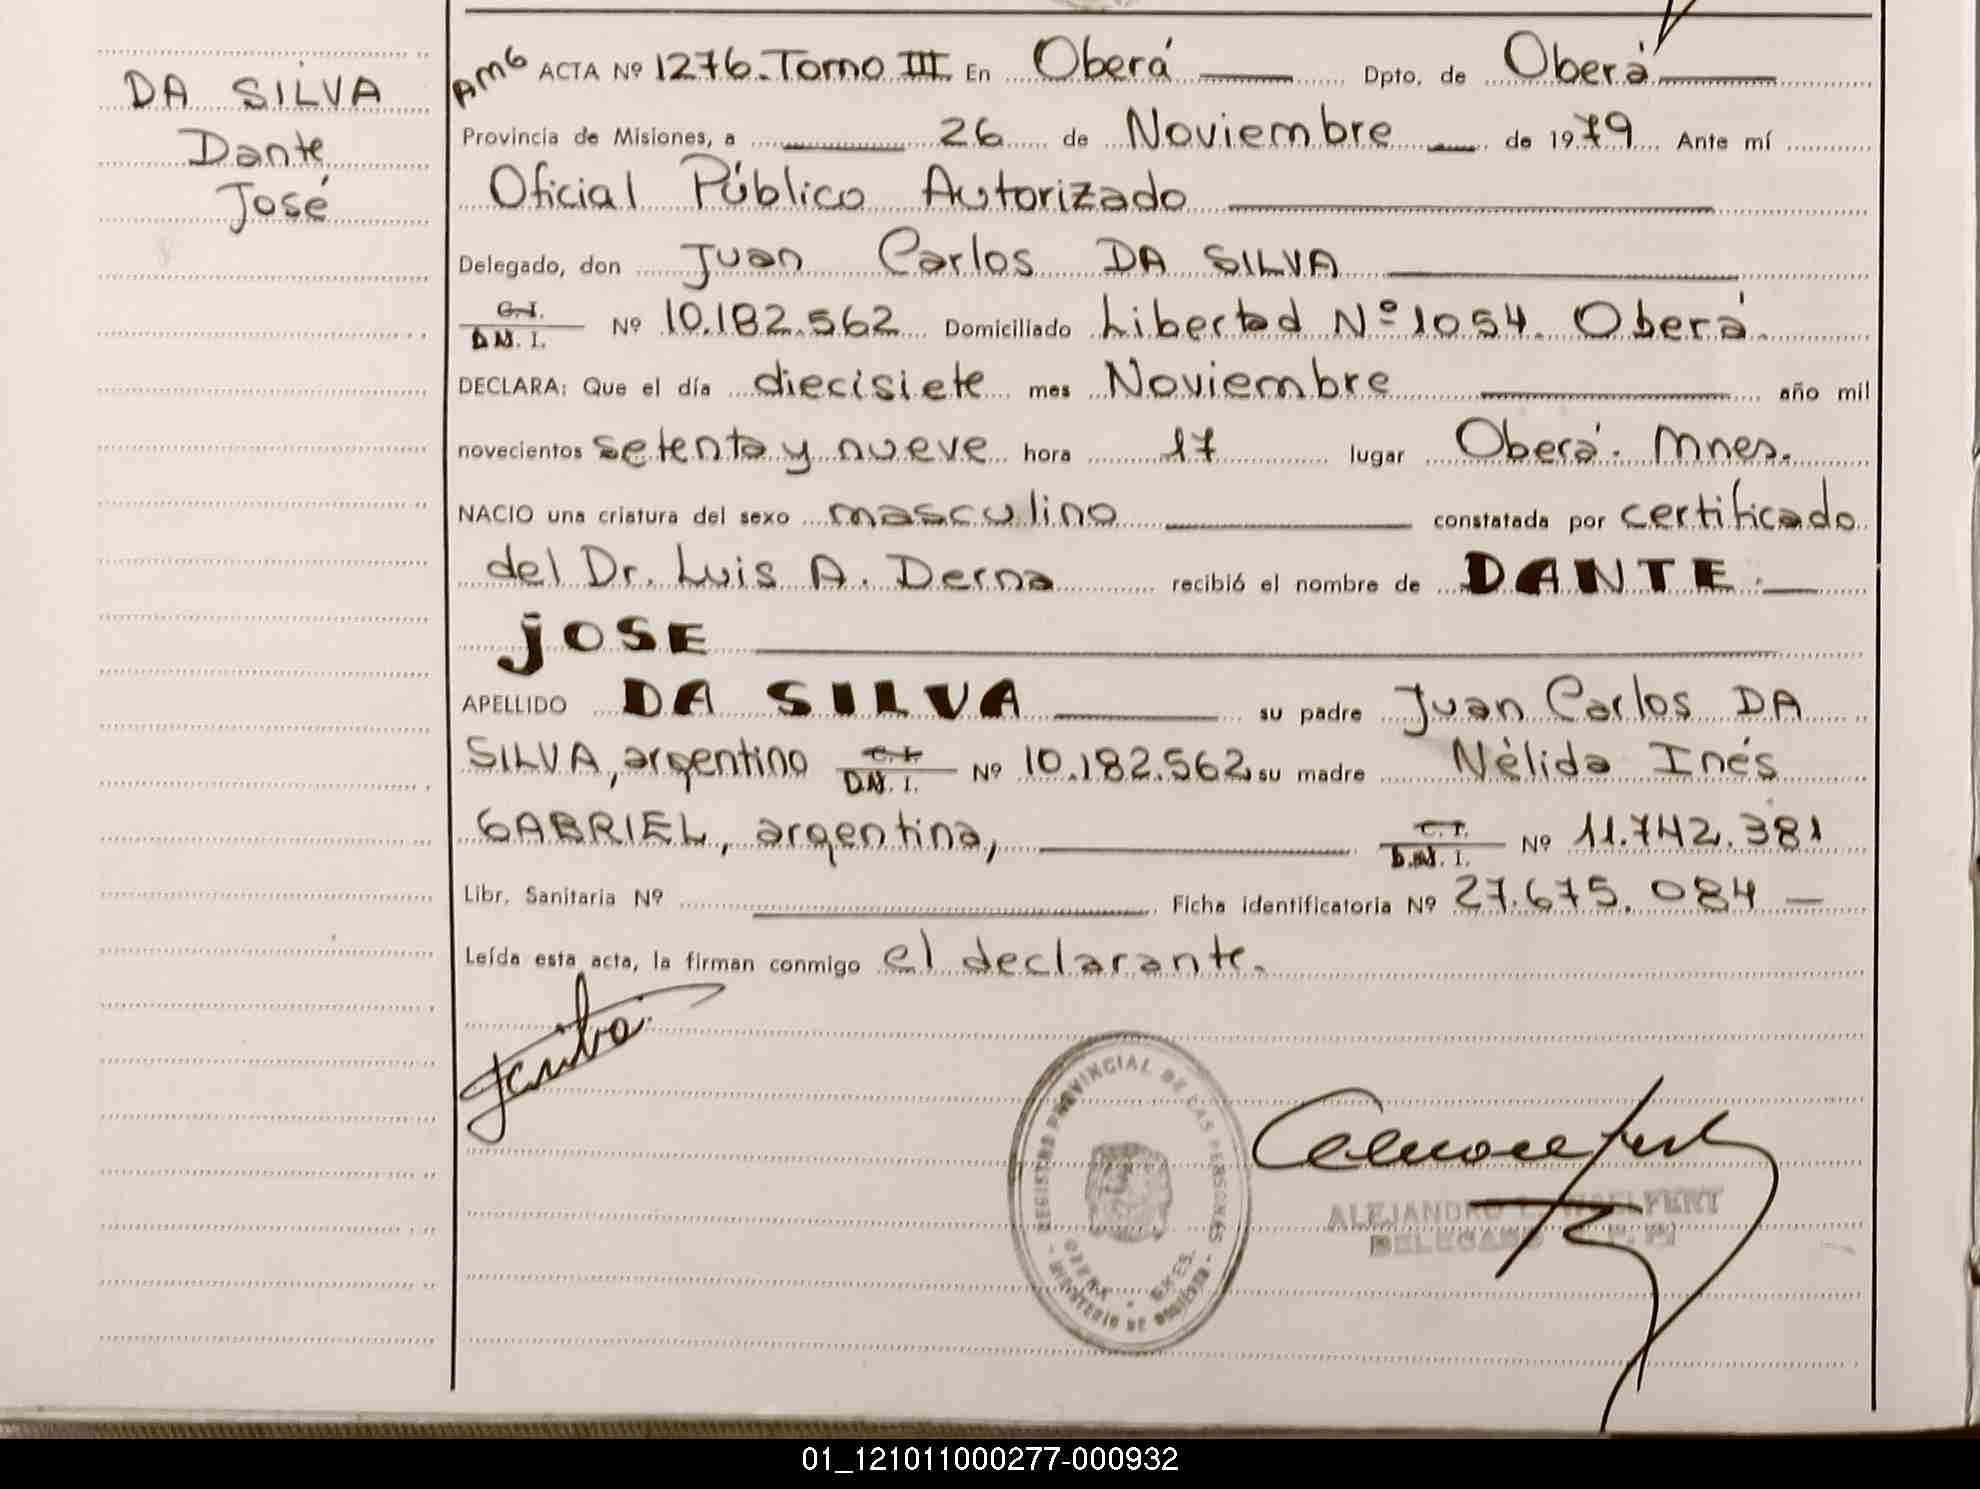 DA SILVA
Dante
José
AMG ACTA Nº 1276. Tomo III En Oberá Dpto. de Oberá
Provincia de Misiones, a 26 de Noviembre de 1979 Ante mí
Oficial Público Autorizado
Delegado, don Juan Carlos DA SILVA
C.I.
D.N.I. Nº 10.182.562 Domiciliado Libertad Nº 1054. Oberá.
DECLARA: Que el día diecisiete mes Noviembre año mil
novecientos setenta y nueve hora 17 lugar Oberá. Mnes.
NACIO una criatura del sexo masculino constatada por certificado
del Dr. Luis A. Derna recibió el nombre de DANTE
JOSE
APELLIDO DA SILVA su padre Juan Carlos DA
SILVA, argentino C.I. D.N.I. Nº 10.182.562 su madre Nélida Inés
GABRIEL, argentina, C.I. D.N.I. Nº 11.742.381
Libr. Sanitaria Nº Ficha identificatoria Nº 27.675.084
Leída esta acta, la firman conmigo el declarante.
REGISTRO PROVINCIAL DE LAS PERSONAS
MINISTERIO DE GOBIERNO
OBERA
ALEJANDRO
DELEGADO
01_121011000277-000932